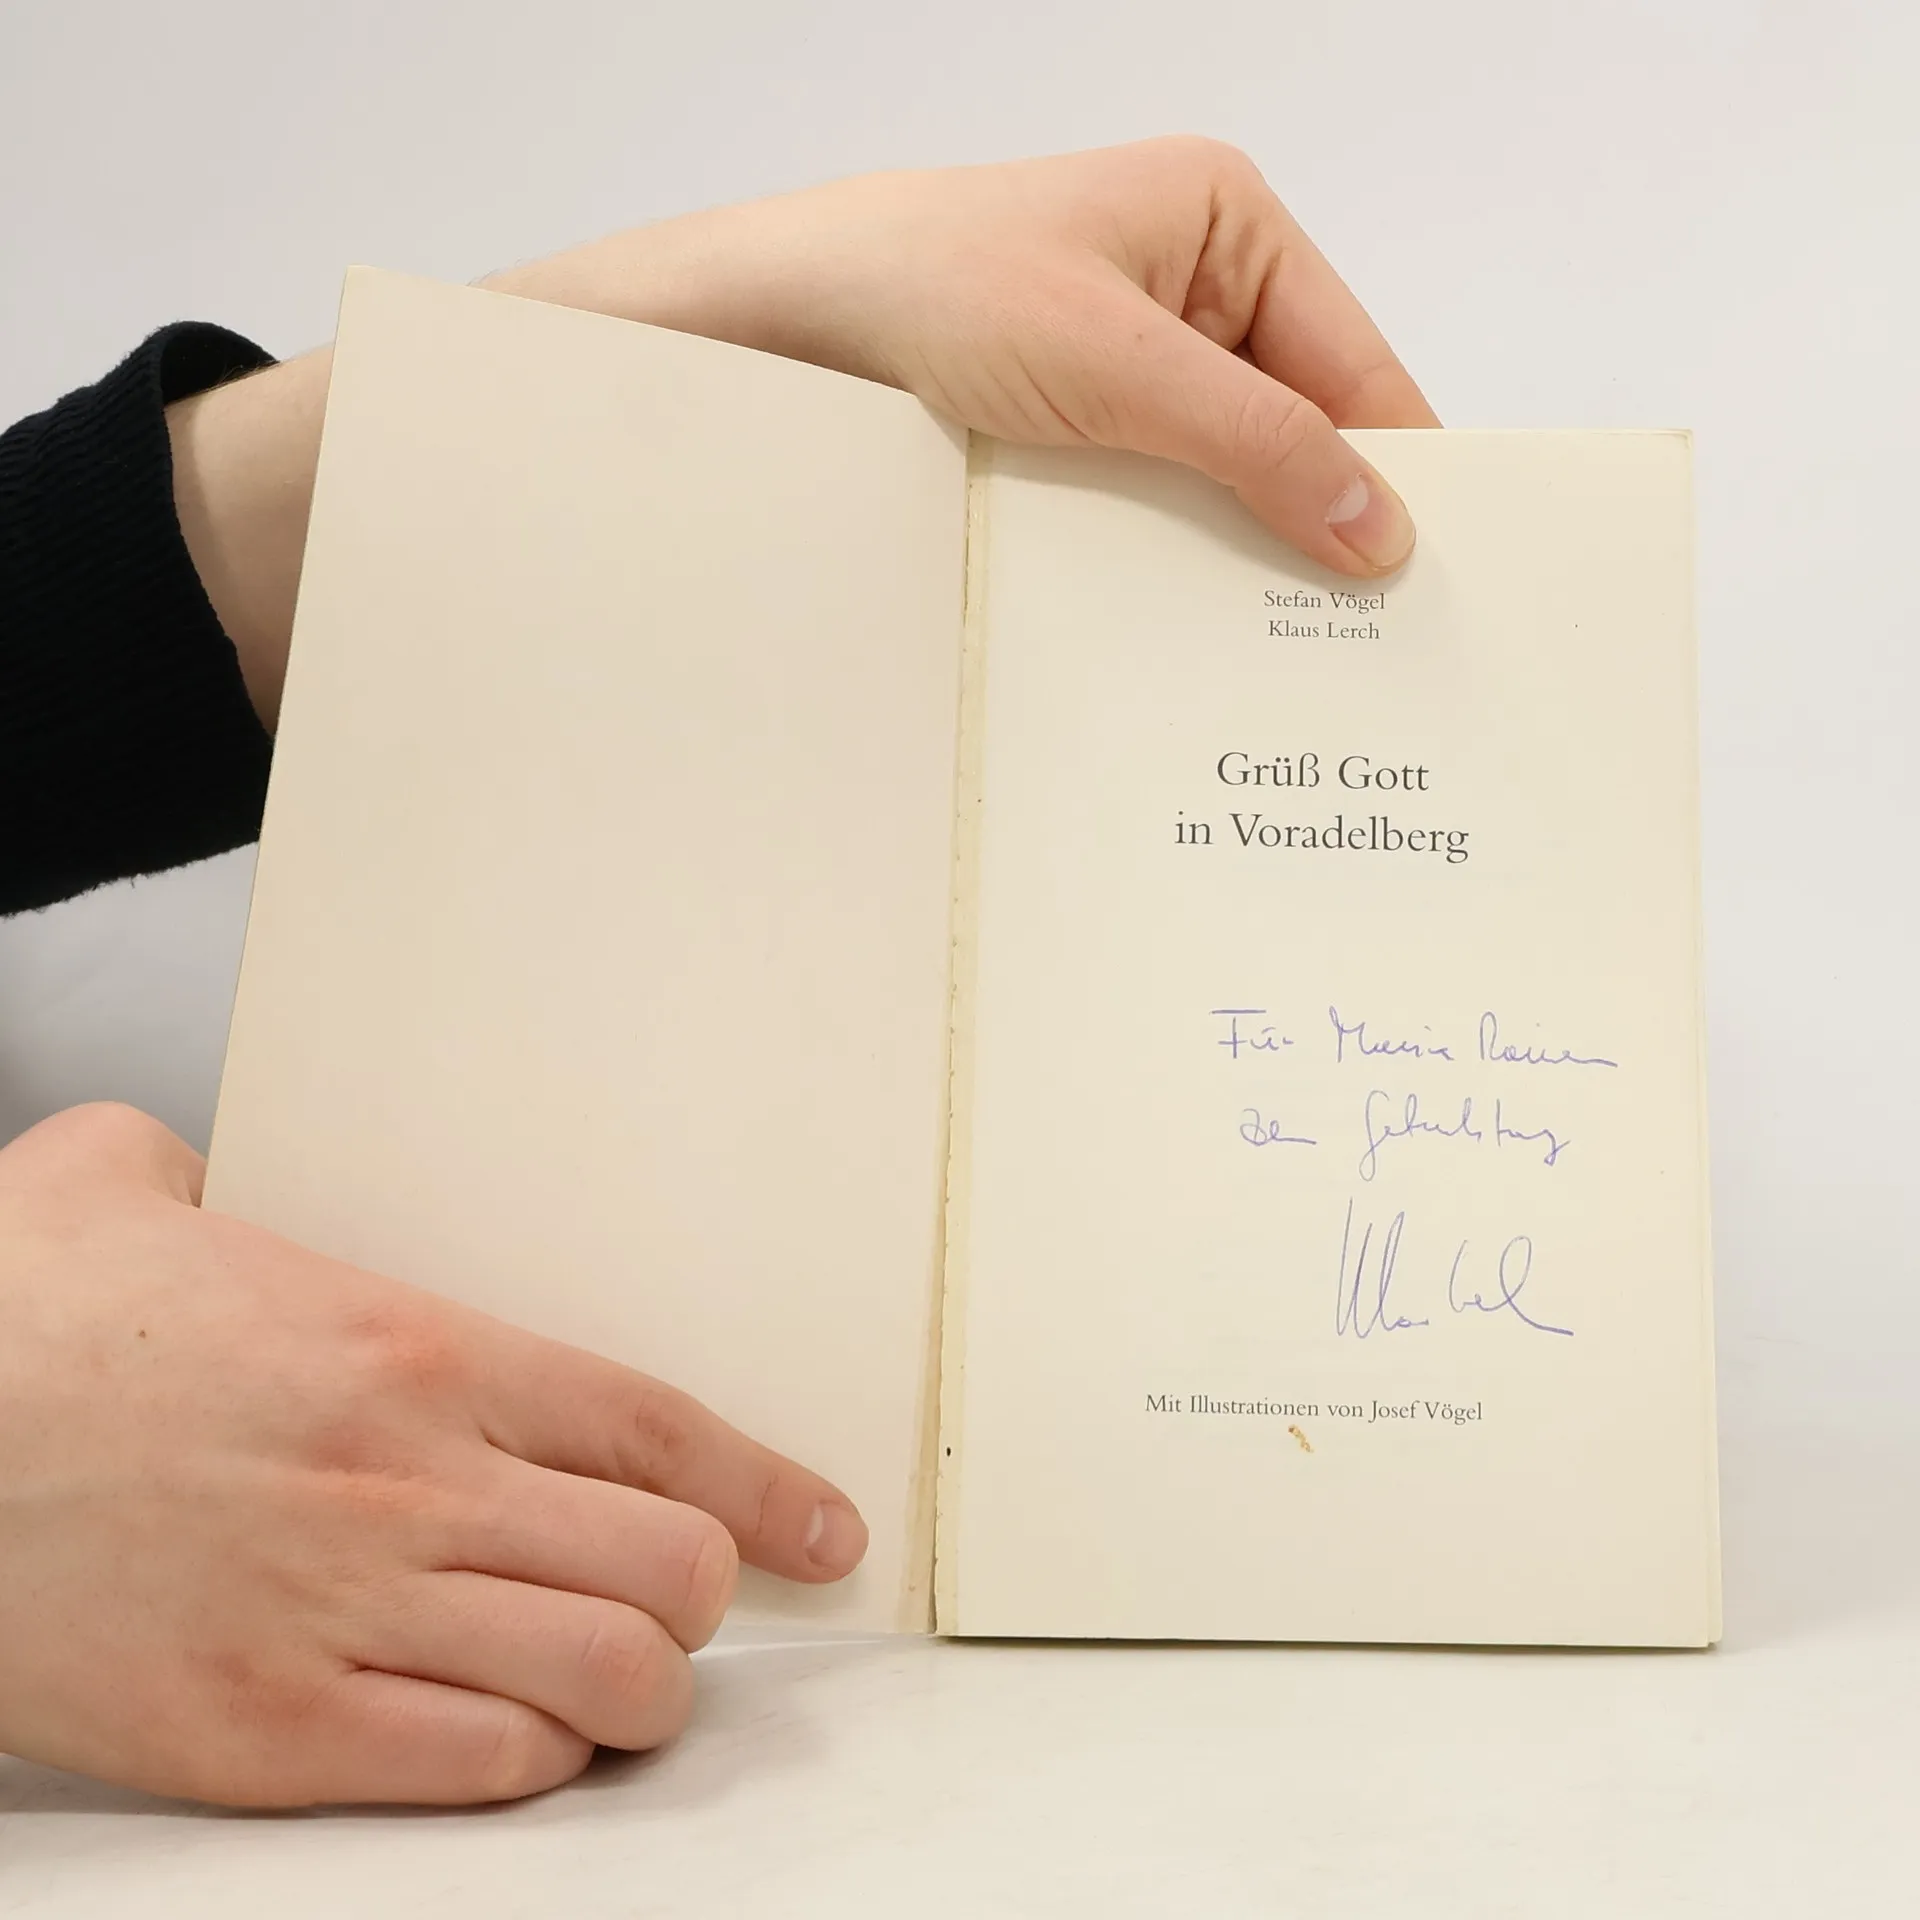 Stefan Vögel
Klaus Lerch
Grüß Gott
in Voradelberg
Für Maria
zum Geburtstag
Mit Illustrationen von Josef Vögel